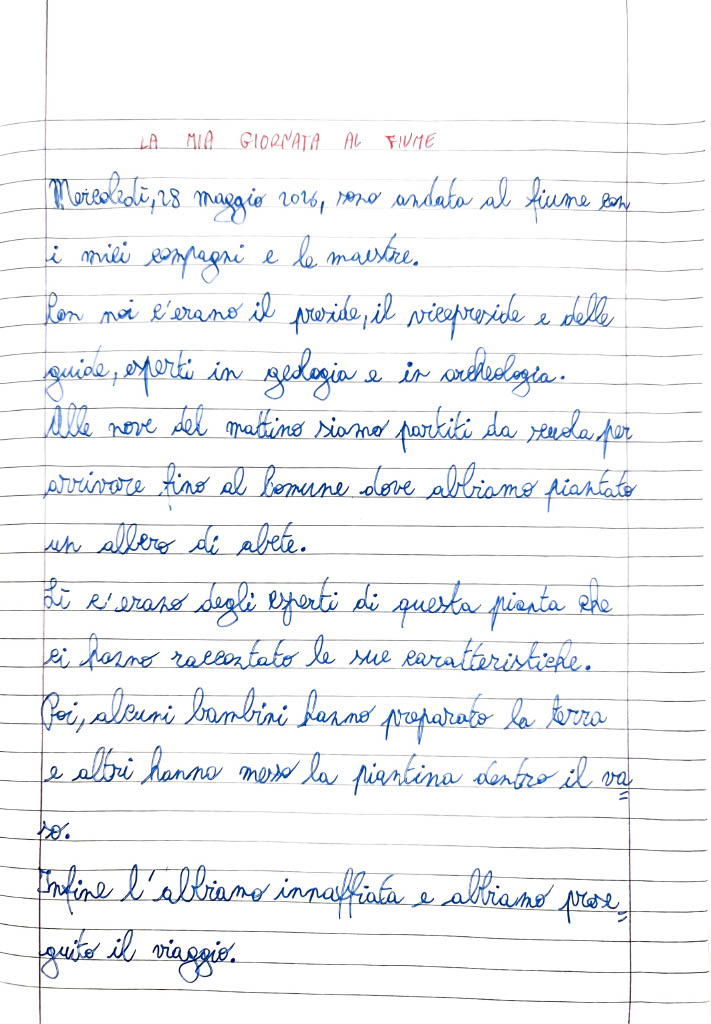 LA MIA GIORNATA AL FIUME
Mercoledì, 28 maggio 2026, sono andata al fiume con
i miei compagni e le maestre.
Con noi c'erano il preside, il vicepreside e delle
guide, esperti in geologia e in archeologia.
Alle nove del mattino siamo partiti da scuola per
arrivare fino al Comune dove abbiamo piantato
un albero di abete.
Lì c'erano degli esperti di questa pianta che
ci hanno raccontato le sue caratteristiche.
Poi, alcuni bambini hanno preparato la terra
e altri hanno messo la piantina dentro il va=
so.
Infine l'abbiamo innaffiata e abbiamo prose=
guito il viaggio.